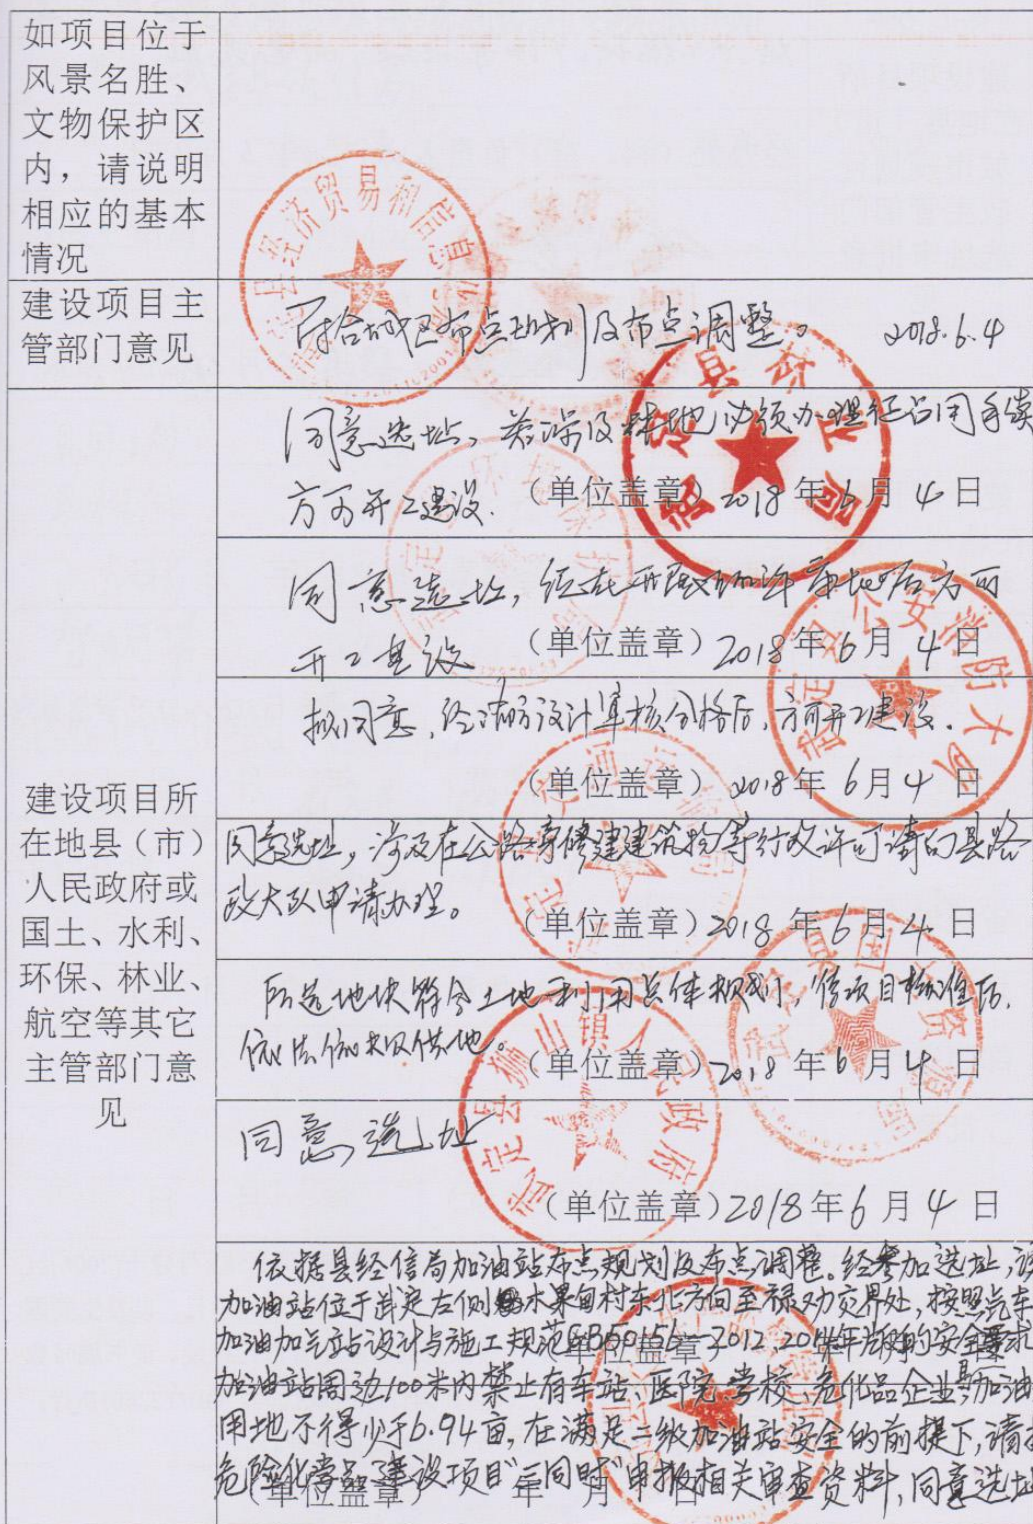 如项目位于
风景名胜、
文物保护区
内，请说明
相应的基本
情况
县经济贸易和信息
建设项目主
管部门意见
符合城区布点规划及布点调整。 2018.6.4
建设项目所
在地县（市）
人民政府或
国土、水利、
环保、林业、
航空等其它
主管部门意
见
同意选址，若涉及林地必须办理征占用手续
方可开工建设.
（单位盖章）2018年6月4日
武定县林业局
同意选址，
方可
开工建设
（单位盖章）2018年6月4日
拟同意，经消防设计审核合格后，方可开工建设.
（单位盖章）2018年6月4日
武定县公安消防大队
同意选址，涉及在公路旁修建建筑物等行政许可请向县路
政大队申请办理。
（单位盖章）2018年6月4日
所选地块符合土地利用总体规划，待项目核准后，
依法依规供地。
（单位盖章）2018年6月4日
武定县国土资源局
同意选址
（单位盖章）2018年6月4日
武定县狮山镇人民政府
依据县经信局加油站布点规划及布点调整。经参加选址，该
加油站位于武定左侧水果甸村东北方向至禄劝交界处，按照汽车
加油加气站设计与施工规范GB50156-2012，2014年版的安全要求
加油站周边100米内禁止有车站、医院、学校、危化品企业，加油
用地不得少于6.94亩，在满足二级加油站安全的前提下，请按
危险化学品建设项目“三同时”申报相关审查资料，同意选址
（单位盖章） 年 月 日